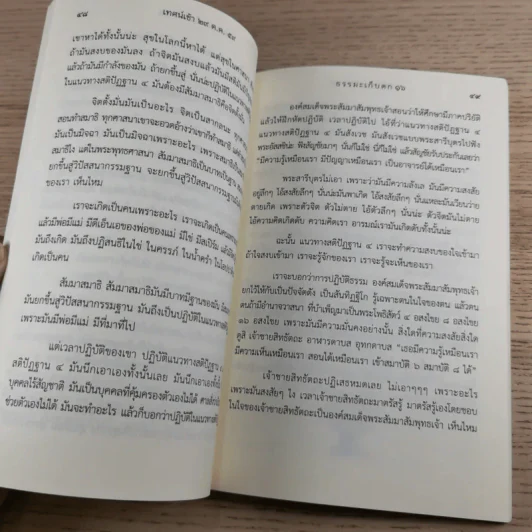 ๔๘ เทศน์เช้า ๒๙ ต.ค. ๔๙
เขาหาได้ทั้งนั้นน่ะ สุขในโลกนี้หาได้
ถ้ามันสงบของมันลง ถ้าจิตมันสงบแล้วมัน
แล้วถ้ามันมีกำลังของมัน ถ้ายกขึ้นสู่ นั่นน่ะปฏิบัติ
ในแนวทางสติปัฏฐาน ๔ มันต้องมีสัมมาสมาธิ
จิตตั้งมั่นมันเป็นอะไร จิตเป็น
สอนทำสมาธิ ทุกศาสนาเขาจะอวดอ้างว่าเขาก็ทำสมาธิ
มันเป็นมิจฉา มันเป็นมิจฉาเพราะอะไร เพราะ
สมาธิไง แต่ในพระพุทธศาสนา สัมมาสมาธิเป็นบาทเป็นฐาน
จะยกขึ้นสู่วิปัสสนากรรมฐาน จะยกขึ้นสู่วิปัสสนา
ของเรา เห็นไหม
เราจะเกิดเป็นคนเพราะอะไร เราจะเกิดเป็น
แล้วมีพ่อมีแม่ มีดีเอ็นเอของพ่อของแม่ มีไข่ มีสเปิร์ม
มันถึงเกิด มันถึงปฏิสนธิในไข่ ในครรภ์ ในน้ำคร่ำ
เกิดเป็นคน
สัมมาสมาธิ สัมมาสมาธิมันมีบาทมีฐานของมัน
มันยกขึ้นสู่วิปัสสนากรรมฐาน มันถึงเป็นปฏิบัติในแนวทาง
เพราะมันมีพ่อมีแม่ มีที่มาที่ไป
แต่เวลาปฏิบัติของเขา ปฏิบัติแนวทาง
สติปัฏฐาน ๔ มันนึกเอาเองทั้งนั้นเลย มันนึกเอาเอง
บุคคลไร้สัญชาติ มันเป็นบุคคลที่คุ้มครองตัวเองไม่ได้
ช่วยตัวเองไม่ได้ มันจะทำอะไร แล้วก็บอกว่าปฏิบัติในแนวทาง
ธรรมะเก็บตก ๑๖ ๔๙
องค์สมเด็จพระสัมมาสัมพุทธเจ้าสอนว่าให้ศึกษามีภาคปริยัติ
แล้วให้ฝึกหัดปฏิบัติ เวลาปฏิบัติไป ไอ้ที่ว่าแนวทางสติปัฏฐาน ๔
แนวทางสติปัฏฐาน ๔ มันสังเวช มันสังเวชแบบพระสารีบุตรไปฟัง
พระอัสสชิน่ะ ฟังสัญชัยมาๆ นั่นก็ไม่ใช่ นี่ก็ไม่ใช่ แล้วสัญชัยรับประกันเลยว่า
“มีความรู้เหมือนเรา มีปัญญาเหมือนเรา เป็นอาจารย์ได้เหมือนเรา”
พระสารีบุตรไม่เอา เพราะว่ามันมีความลังเล มันมีความสงสัย
อยู่ลึกๆ ไอ้สงสัยลึกๆ นั่นน่ะมันพาเกิด ไอ้สงสัยลึกๆ
ตายเกิด เพราะตัวจิต ตัวไม่ตาย ไอ้ตัวลึกๆ นั่นน่ะ ตัวจิตมันไม่ตาย
ไอ้ความคิดเกิดดับ ความคิดเรา อารมณ์เรามันเกิดดับทั้งนั้นน่ะ
ฉะนั้น แนวทางสติปัฏฐาน ๔ เราจะทำความสงบของใจเข้ามา
ถ้าใจสงบเข้ามา เราจะรู้จักของเรา เราจะรู้จะเห็นของเรา
เราจะบอกว่าการปฏิบัติธรรม องค์สมเด็จพระสัมมาสัมพุทธเจ้า
ยกไว้ให้กับเป็นปัจจัตตัง เป็นสันทิฏฐิโก รู้เฉพาะตนในใจของตน แล้ว
ตนถ้ามีอำนาจวาสนา ที่บำเพ็ญมาเป็นพระโพธิสัตว์ ๔ อสงไขย ๘ อสงไขย
๑๖ อสงไขย เพราะมันมีความมั่นคงอย่างนั้น สิ่งใดที่ความสงสัยสิ่งใด
ดูสิ เจ้าชายสิทธัตถะ อาฬารดาบส อุทกดาบส “เธอมีความรู้เหมือนเรา
มีความเห็นเหมือนเรา สอนได้เหมือนเรา เข้าสมาบัติ ๖ สมาบัติ ๘ ได้”
เจ้าชายสิทธัตถะปฏิเสธหมดเลย ไม่เอาๆๆๆ เพราะอะไร
เพราะมันสงสัยๆ ไง เวลาเจ้าชายสิทธัตถะมาตรัสรู้ มาตรัสรู้เองโดยชอบ
ในใจของเจ้าชายสิทธัตถะเป็นองค์สมเด็จพระสัมมาสัมพุทธเจ้า เห็นไหม